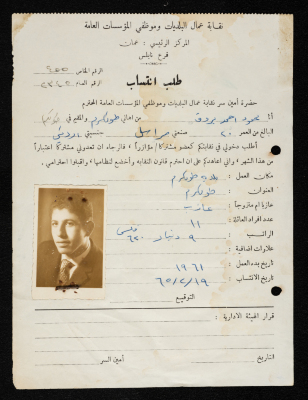 نقابة عمال البلديات وموظفي المؤسسات العامة
المركز الرئيسي : عمان
فرع نابلس
الرقم الخاص
الرقم العام
طلب انتساب
حضرة أمين سر نقابة عمال البلديات وموظفي المؤسسات العامة المحترم
أنا محمود احمد من اهالي طولكرم والمقيم في
البالغ من العمر ٢٠ صنعتي مراسل جنسيتي اردني
أطلب دخولي في نقابتكم كعضو مشتركا مؤازرا فالرجاء ان تعدوني مشتركا اعتباراً
من هذا الشهر واني اعاهدكم على ان احترم قانون النقابة وأخضع لنظامها واقبلوا احترامي .
مكان العمل : بلدية طولكرم
العنوان : طولكرم
عازبا ام متزوجا : عازب
عدد افراد العائلة : ١١
الراتب : ٩ دينار ٦٢٠ فلس
علاوات اضافية :
تاريخ بدء العمل : ١٩٦١
تاريخ الانتساب : ٦٥/٢/١٩
التوقيع
قرار الهيئة الادارية :
التاريخ أمين السر